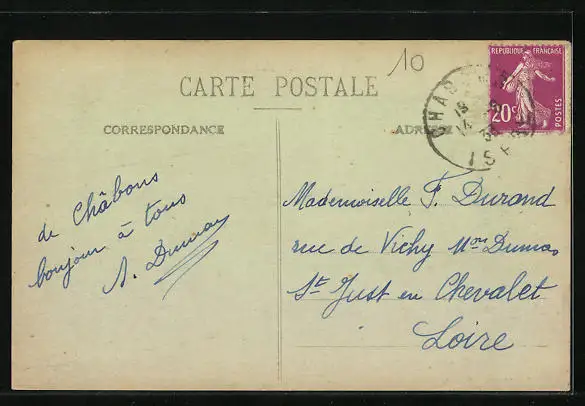 10
CARTE POSTALE
REPUBLIQUE FRANÇAISE
20c
POSTES
ISERE
CORRESPONDANCE
ADRESSE
de Châbons
bonjour à tous
A. Dumas
Mademoiselle F. Durand
rue de Vichy Mon Dumas
St Just en Chevalet
Loire